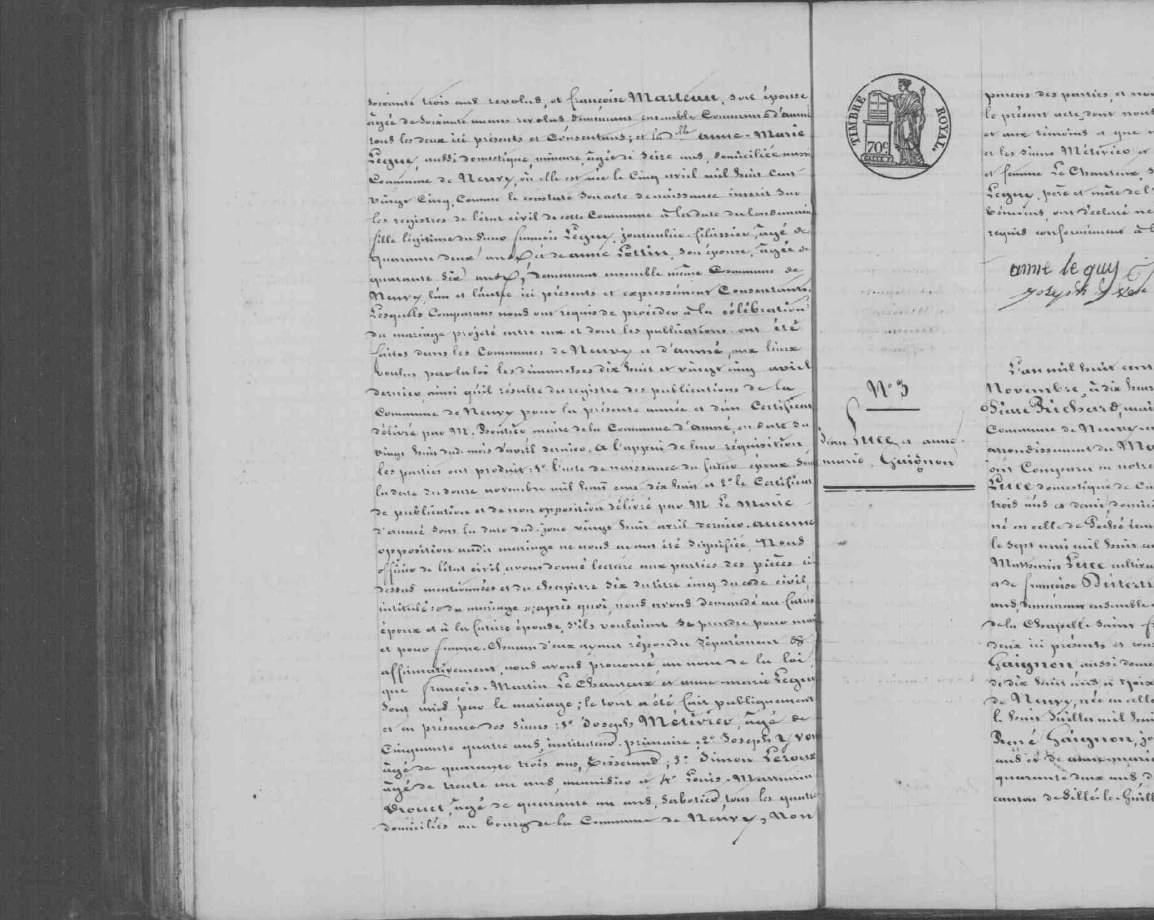 Soixante trois ans revolus, et françoise Marteau, son épouse
âgée de Soixante ans revolus demeurant ensemble Commune d'anné
tous les deux ici présents et Consentans; et la dlle anne-Marie
Leguy, aussi domestique, mineure, âgée de Seize ans, domiciliée
Commune de Neuvy, où elle est née le Cinq avril mil huit Cent
vingt Cinq, Comme le constate Son acte de naissance inscrit Sur
les registres de l'état civil de cette Commune à la date du lendemain
fille légitime du Sieur françois Leguy, journalier-filassier, âgé de
quarante deux ans, et de anne Pottin, Son épouse, âgée de
quarante dix ans, demeurant ensemble même Commune de
Neuvy l'un et l'autre ici présents et expressément Consentants.
Lesquels Comparans nous ont requis de procéder à la célébration
du mariage projeté entre eux et dont les publications ont été
faites dans les Communes de Neuvy et d'anné, aux lieux
voulus par la loi les dimanches dix huit et vingt cinq avril
dernier ainsi qu'il résulte du registre des publications de la
Commune de Neuvy pour la présente année et d'un Certificat
délivré par M. maire de la Commune d'anné, en date du
vingt huit dud. mois d'avril dernier. A l'appui de leur réquisition
les parties ont produit: 1° l'acte de naissance du futur époux Sous
la date du douze novembre mil huit cent dix huit et 2° le Certificat
de publication et de non opposition délivré par M. Le Maire
d'anné Sous la date dud. jour vingt huit avril dernier. aucune
opposition audit mariage ne nous ayant été Signifiée, Nous
officier de l'état civil avons donné lecture aux parties des pièces ci
dessus mentionnées et du chapitre Six du titre cinq du code civil,
intitulé: du mariage; après quoi, nous avons demandé au futur
époux et à la future épouse, S'ils voulaient Se prendre pour mari
et pour femme. Chacun d'eux ayant répondu Séparément et
affirmativement, nous avons prononcé au nom de la loi
que françois-Martin Le Chanteux et anne-marie Leguy
Sont unis par le mariage; le tout a été fait publiquement
et en présence des Sieurs: 1° Joseph Métivier, âgé de
Cinquante quatre ans, instituteur primaire; 2° Joseph Yvon
âgé de quarante trois ans, tisserand; 3° Simon Leroux
âgé de trente un ans, menuisier et 4° Louis-Mathurin
Drouet, âgé de quarante un ans, Sabotier, tous les quatre
domiciliés au bourg de la Commune de Neuvy, Non
TIMBRE ROYAL.
70c
N° 3
Jean Luce et anne
marie Gaignon
parens des parties, et nous
le présent acte, dont
et aux témoins et que
et les Sieurs Métivier et
et femme Le Chanteux, 
Leguy, père et mère de l'
témoins, ont déclaré ne
requis conformément à l
anne leguy
joseph yvon
L'an mil huit cent
Novembre, à dix heures
Pierre Richard, mai
Commune de Neuvy-en
arrondissement du Ma
ont Comparu en notre
Luce domestique de
trois ans et demi domici
né en celle de
le Sept mai mil huit ce
Mathurin Luce cultiva
et de françoise Dutertr
ans, demeurant ensemble
de la Chapelle Saint-f
deux ici présents et con
Gaignon aussi domes
de dix huit ans et
de Neuvy, née en celle
le huit Juillet mil hui
René Gaignon, jo
ans et de anne marie
quarante deux ans d
canton de Sillé-le-Guill